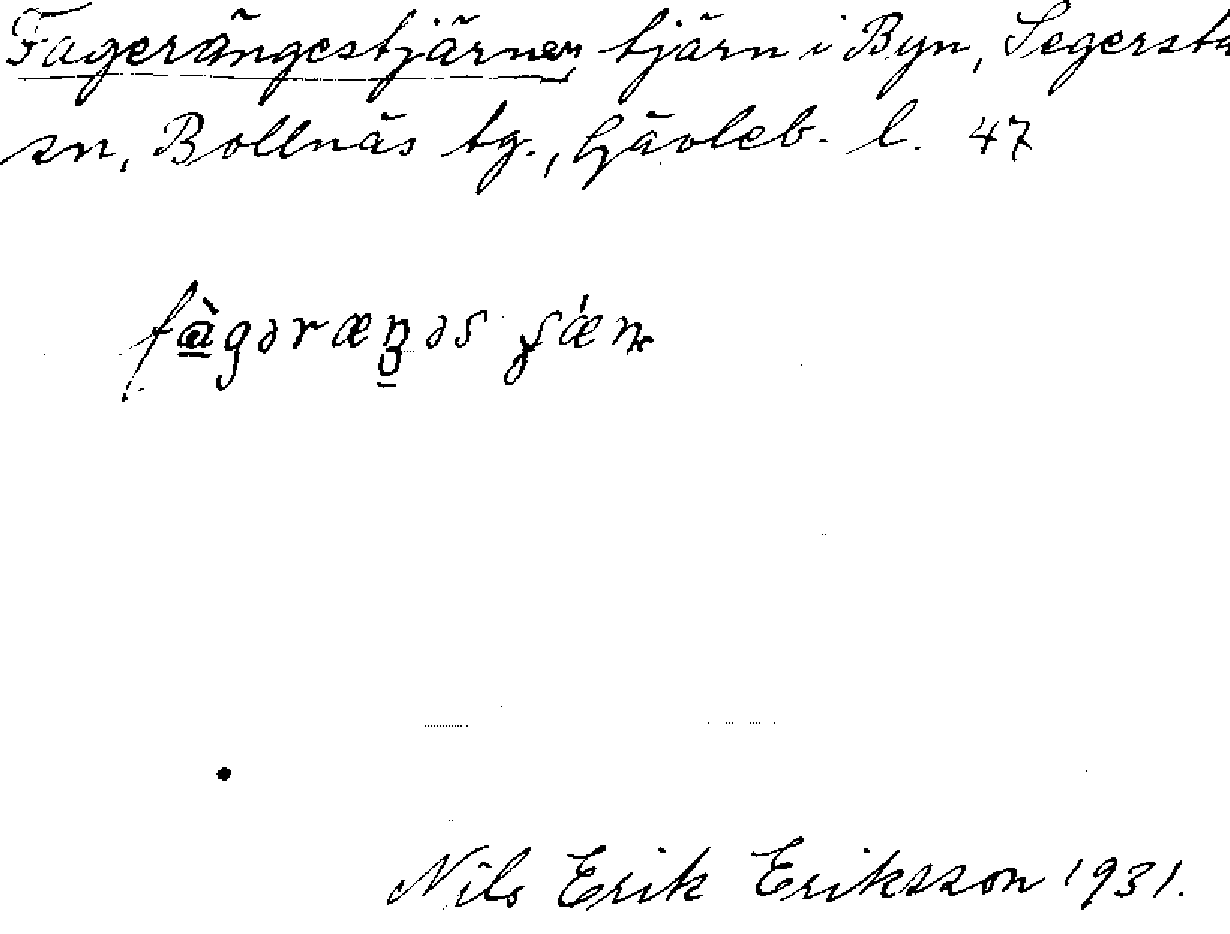 Fagerängestjärnen, tjärn i Byn, Segersta
sn, Bollnäs tg., Gävleb. l. 47
fàgəræŋəs ʂǽɳ
Nils Erik Eriksson 1931.